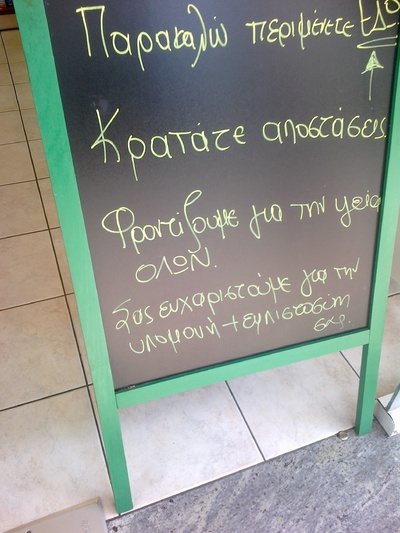 Παρακαλώ περιμένετε ΕΔΩ
Κρατάτε αποστάσεις
Φροντίζουμε για την υγεία
ΟΛΩΝ.
Σας ευχαριστούμε για την
υπομονή + εμπιστοσύνη
σας.